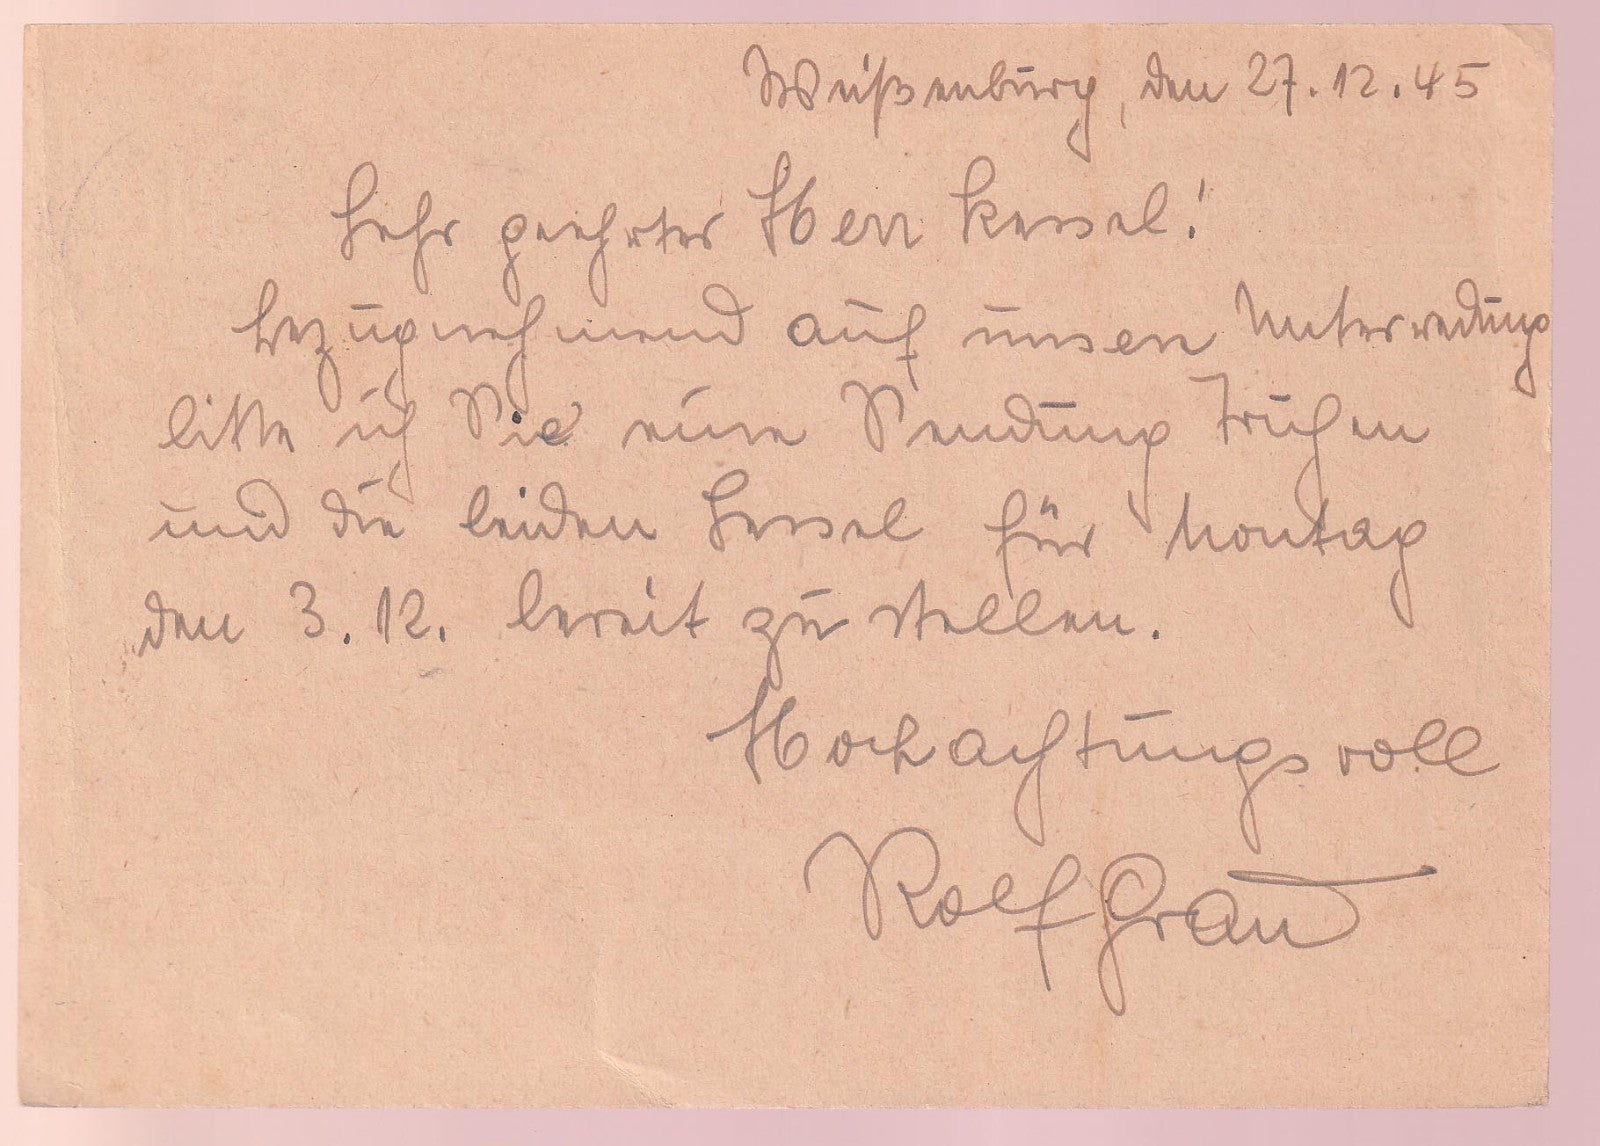 Weißenburg, den 27.12.45
Sehr geehrter Herr Kessel!
bezugnehmend auf unsere Unterredung
bitte ich Sie eine Sendung Truhen
und die beiden Sessel für Montag
den 3.12. bereit zu stellen.
Hochachtungsvoll
Rolf Grau